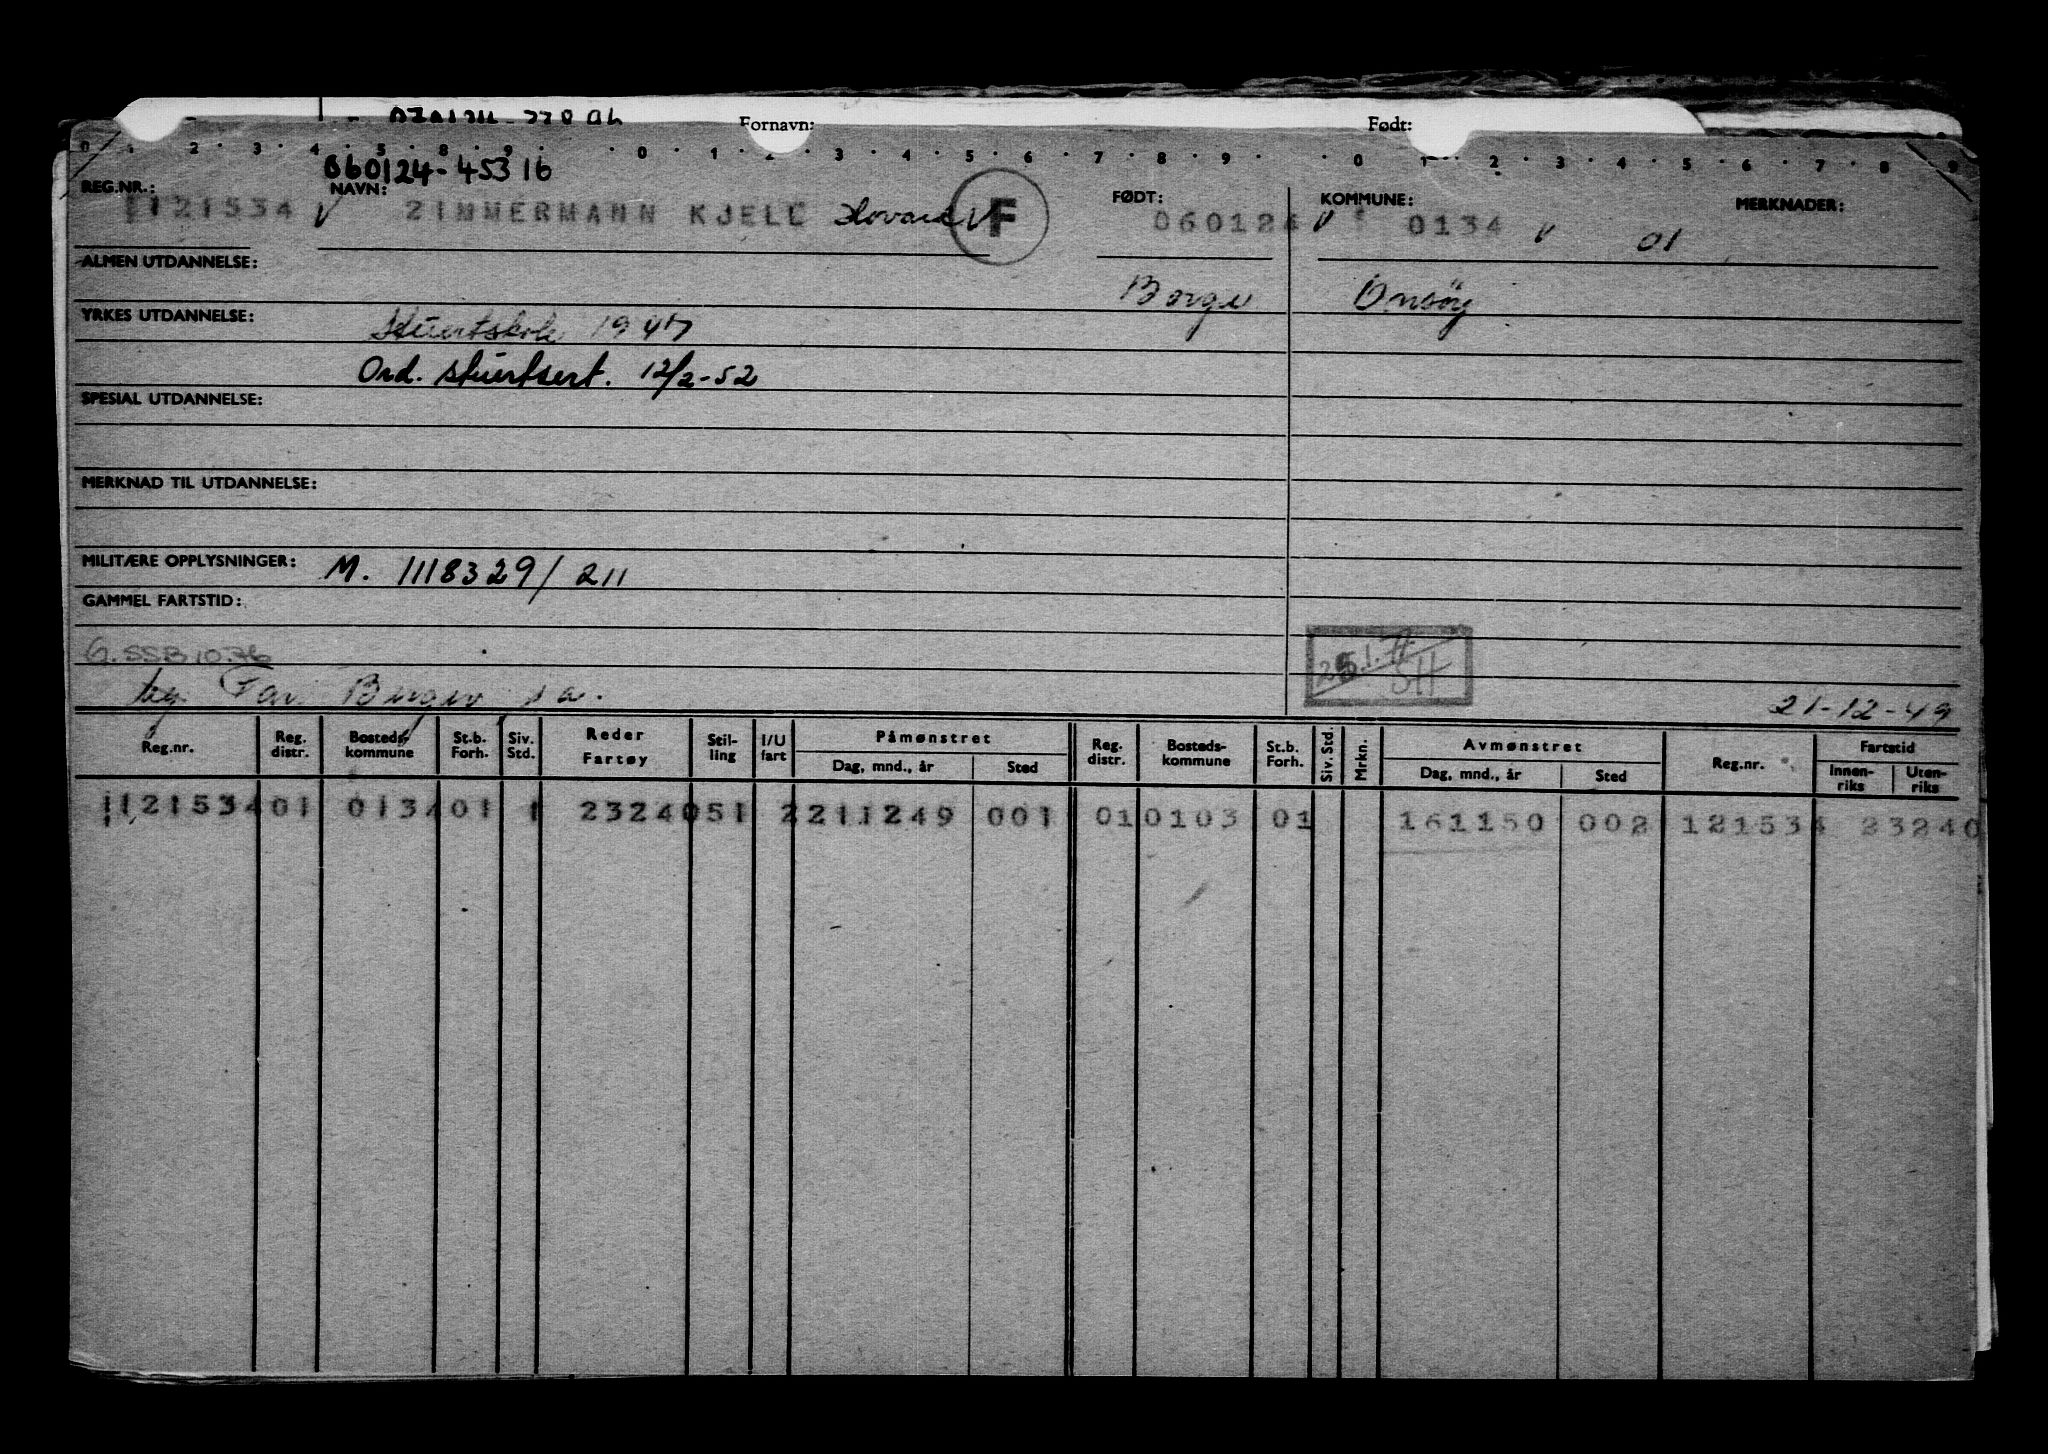 Fornavn: Født:
0 1 2 3 4 5 8 9 0 1 2 3 4 5 6 7 8 9 0 1 2 3 4 5 6 7 8 9
060124-45316
REG.NR.: NAVN: FØDT: KOMMUNE: MERKNADER:
121534 V ZIMMERMANN KJELL Hovard V F 060124 V 0134 V 01
ALMEN UTDANNELSE:
Borge Onsöy
YRKES UTDANNELSE: Stuertskole 1947
Ord. stuertsert. 12/2-52
SPESIAL UTDANNELSE:
MERKNAD TIL UTDANNELSE:
MILITÆRE OPPLYSNINGER: M. 1118329/211
GAMMEL FARTSTID:
G. SSB 10.76
Far Birger
SH
21-12-49
Reg.nr. Reg. distr. Bosteds- kommune St.b. Forh. Siv. Std. Reder Fartøy Stil- ling I/U fart Påmønstret Dag, mnd., år Sted Reg. distr. Bosteds- kommune St.b. Forh. Siv. Std. Mrkn. Avmønstret Dag, mnd., år Sted Reg.nr. Fartstid Innen- riks Uten- riks
121534 01 0134 01 1 23240 51 2 211249 001 01 0103 01 161150 002 121534 23240